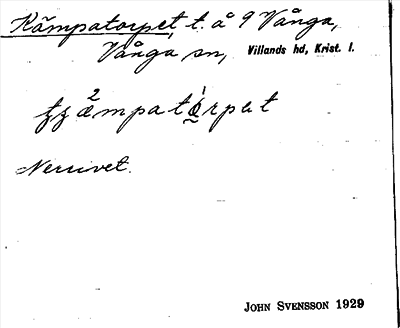 Kämpatorpet, t. å 9 Vånga,
Vånga sn, Villands hd, Krist. l.
Nerrivet.
JOHN SVENSSON 1929